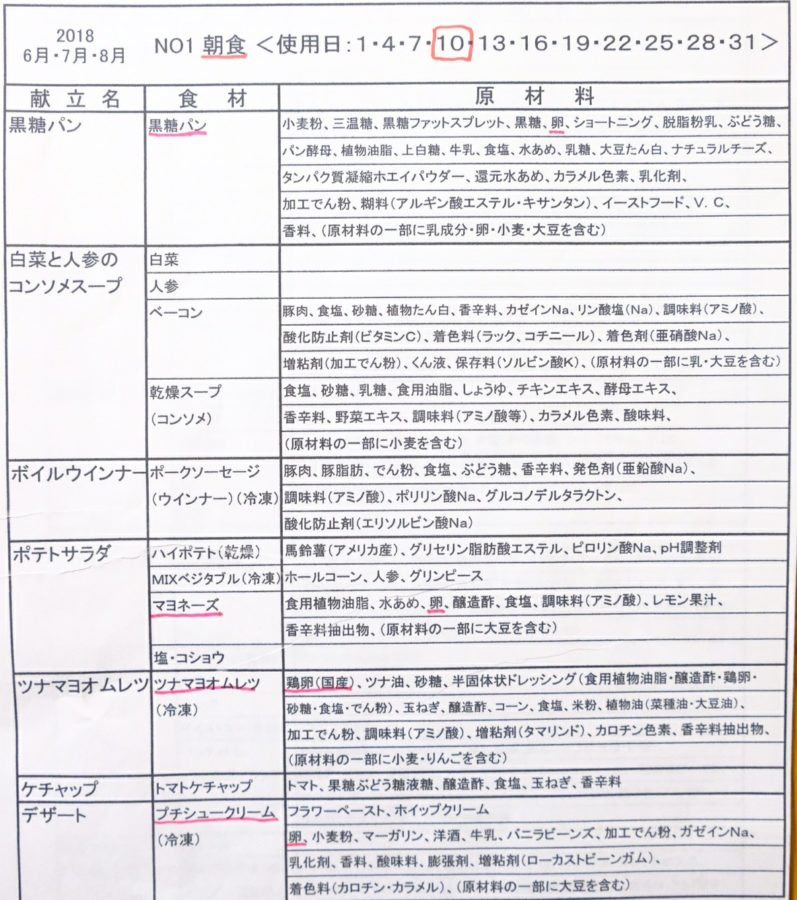 2018
6月・7月・8月
NO1 朝食 <使用日:1・4・7・10・13・16・19・22・25・28・31>
献立名 食材 原材料
黒糖パン 黒糖パン 小麦粉、三温糖、黒糖ファットスプレット、黒糖、卵、ショートニング、脱脂粉乳、ぶどう糖、
パン酵母、植物油脂、上白糖、牛乳、食塩、水あめ、乳糖、大豆たん白、ナチュラルチーズ、
タンパク質凝縮ホエイパウダー、還元水あめ、カラメル色素、乳化剤、
加工でん粉、糊料(アルギン酸エステル・キサンタン)、イーストフード、V.C、
香料、(原材料の一部に乳成分・卵・小麦・大豆を含む)
白菜と人参の 白菜
コンソメスープ 人参
ベーコン 豚肉、食塩、砂糖、植物たん白、香辛料、カゼインNa、リン酸塩(Na)、調味料(アミノ酸)、
酸化防止剤(ビタミンC)、着色料(ラック、コチニール)、着色剤(亜硝酸Na)、
増粘剤(加工でん粉)、くん液、保存料(ソルビン酸K)、(原材料の一部に乳・大豆を含む)
乾燥スープ 食塩、砂糖、乳糖、食用油脂、しょうゆ、チキンエキス、酵母エキス、
(コンソメ) 香辛料、野菜エキス、調味料(アミノ酸等)、カラメル色素、酸味料、
(原材料の一部に小麦を含む)
ボイルウインナー ポークソーセージ 豚肉、豚脂肪、でん粉、食塩、ぶどう糖、香辛料、発色剤(亜鉛酸Na)、
(ウインナー)(冷凍) 調味料(アミノ酸)、ポリリン酸Na、グルコノデルタラクトン、
酸化防止剤(エリソルビン酸Na)
ポテトサラダ ハイポテト(乾燥) 馬鈴薯(アメリカ産)、グリセリン脂肪酸エステル、ピロリン酸Na、pH調整剤
MIXベジタブル(冷凍) ホールコーン、人参、グリンピース
マヨネーズ 食用植物油脂、水あめ、卵、醸造酢、食塩、調味料(アミノ酸)、レモン果汁、
香辛料抽出物、(原材料の一部に大豆を含む)
塩・コショウ
ツナマヨオムレツ ツナマヨオムレツ 鶏卵(国産)、ツナ油、砂糖、半固体状ドレッシング(食用植物油脂・醸造酢・鶏卵・
(冷凍) 砂糖・食塩・でん粉)、玉ねぎ、醸造酢、コーン、食塩、米粉、植物油(菜種油・大豆油)、
加工でん粉、調味料(アミノ酸)、増粘剤(タマリンド)、カロチン色素、香辛料抽出物、
(原材料の一部に小麦・りんごを含む)
ケチャップ トマトケチャップ トマト、果糖ぶどう糖液糖、醸造酢、食塩、玉ねぎ、香辛料
デザート プチシュークリーム フラワーペースト、ホイップクリーム
(冷凍) 卵、小麦粉、マーガリン、洋酒、牛乳、バニラビーンズ、加工でん粉、ガゼインNa、
乳化剤、香料、酸味料、膨張剤、増粘剤(ローカストビーンガム)、
着色料(カロチン・カラメル)、(原材料の一部に大豆を含む)